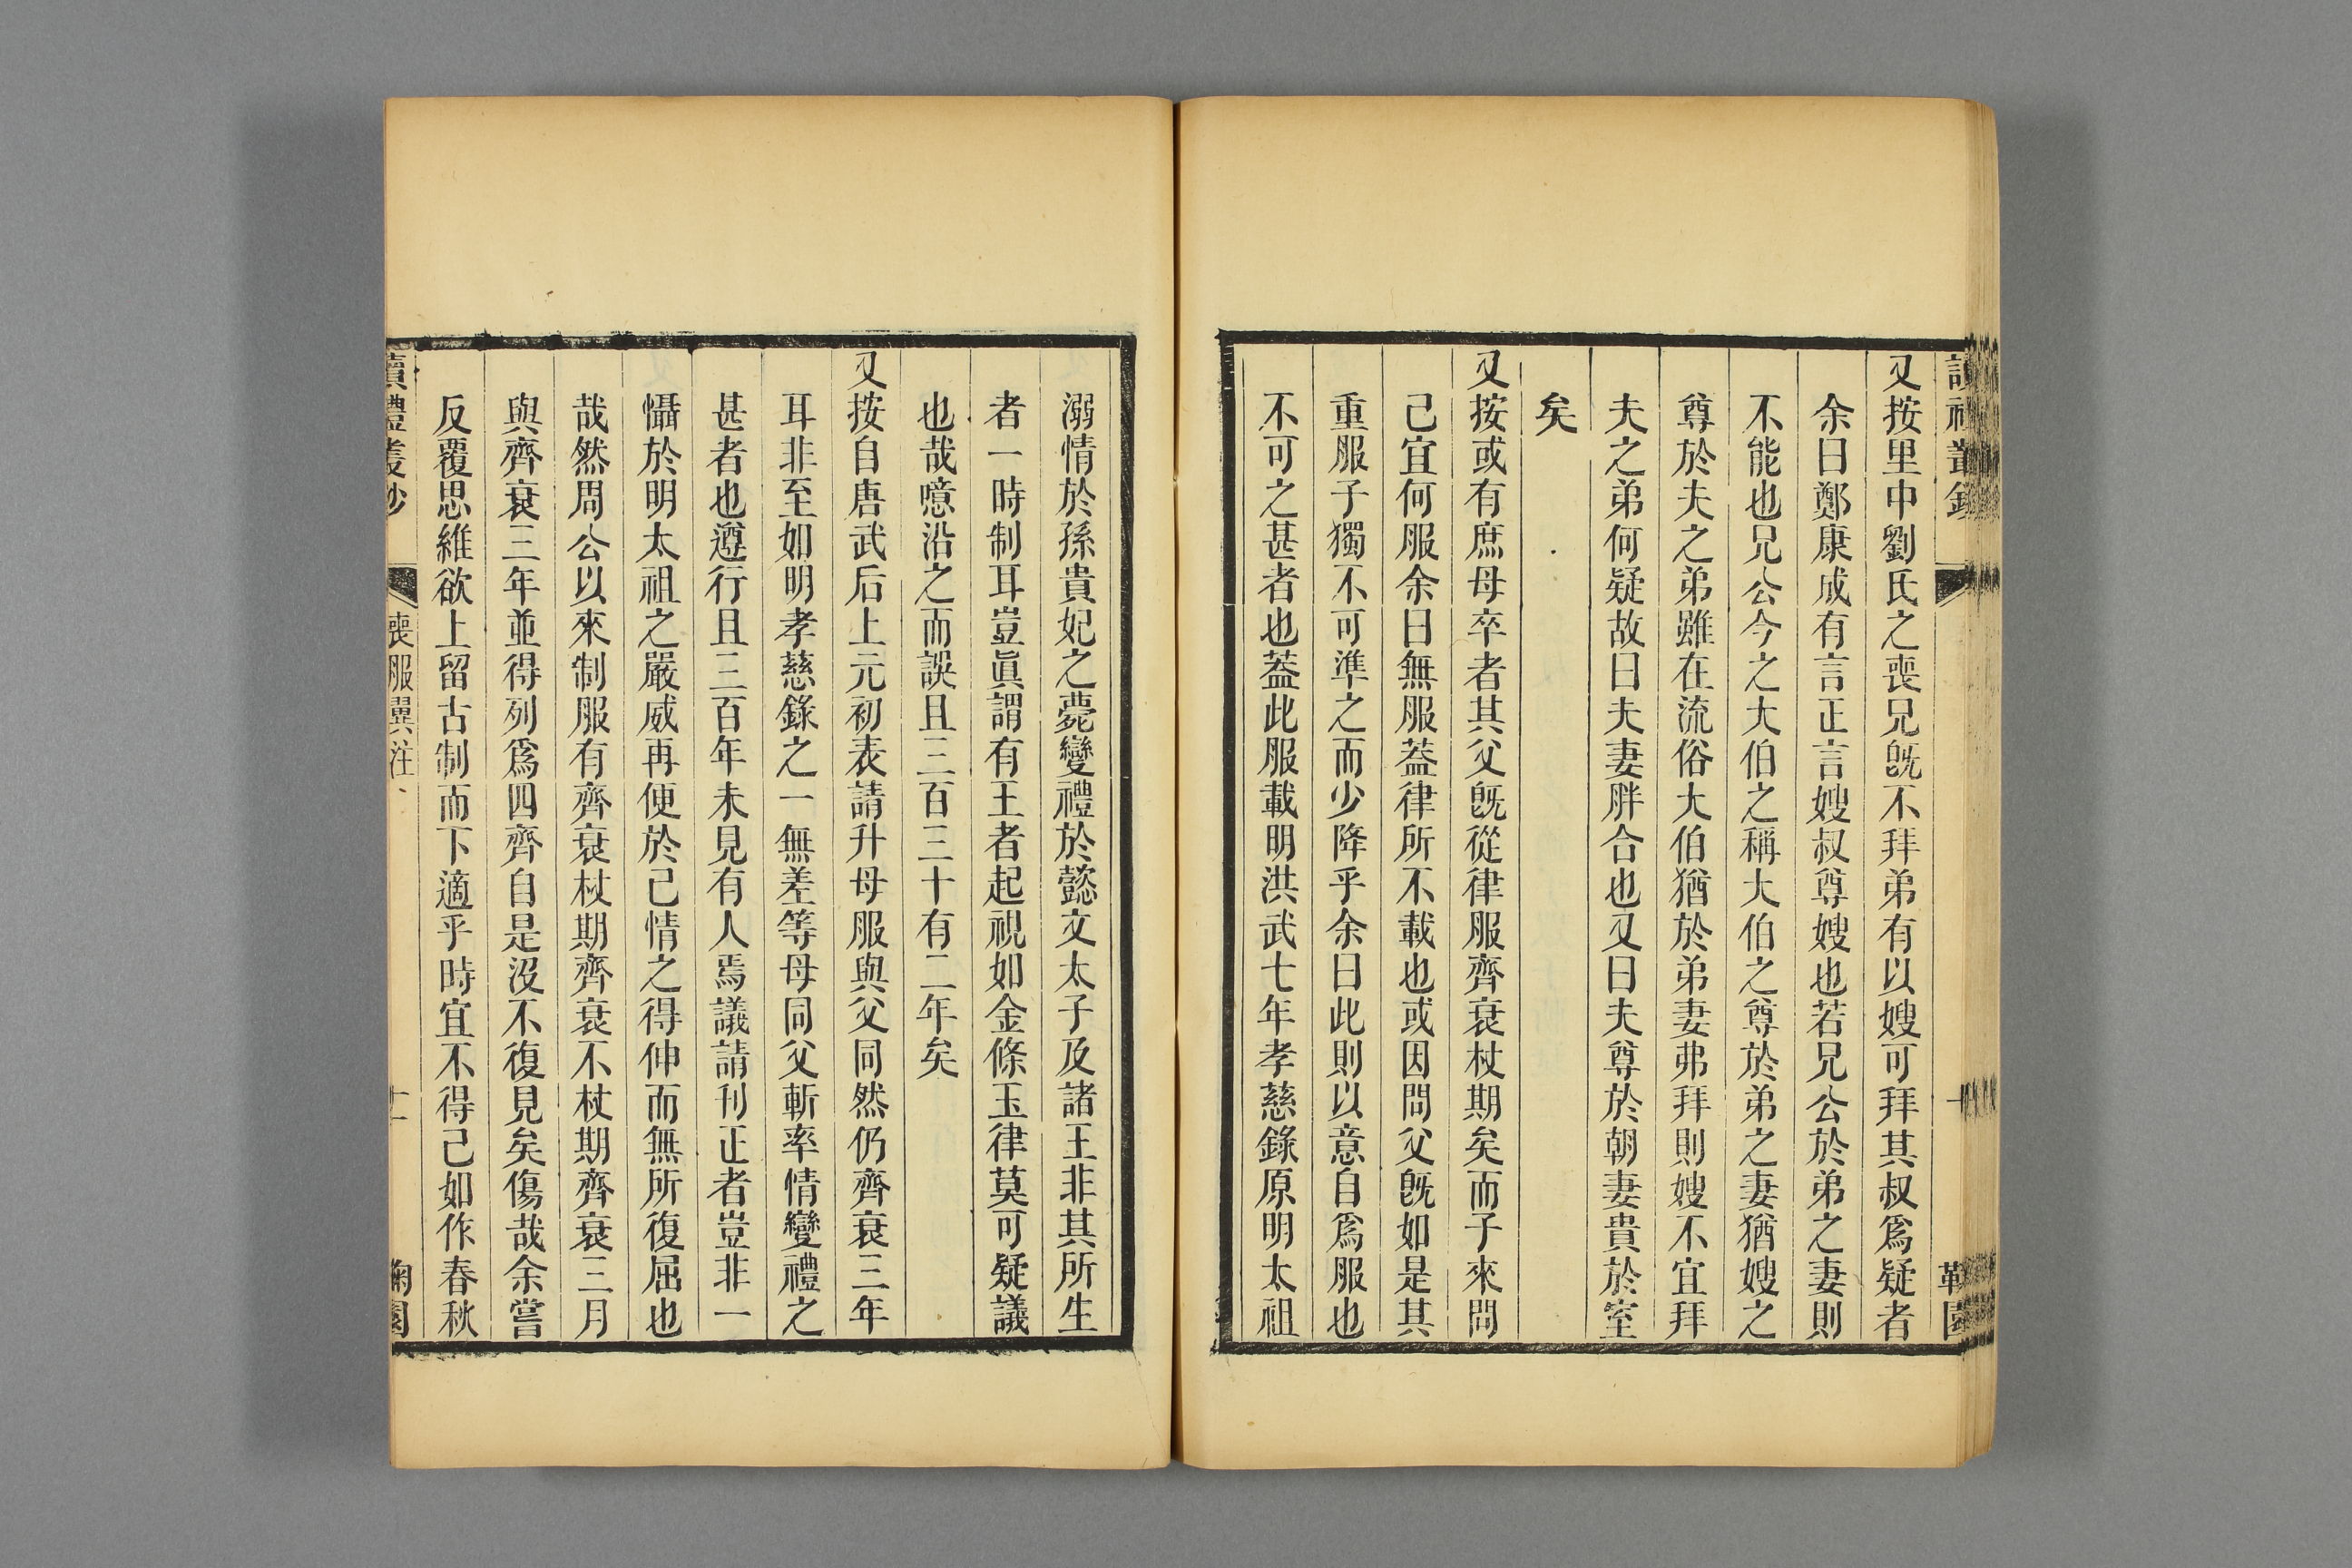 又按里中劉氏之喪兄旣不拜弟有以嫂可拜其叔爲疑者
余曰鄭康成有言正言嫂叔尊嫂也若兄公於弟之妻則
不能也兄公今之大伯之稱大伯之尊於弟之妻猶嫂之
尊於夫之弟雖在流俗大伯猶於弟妻弗拜則嫂不宜拜
夫之弟何疑故曰夫妻胖合也又曰夫尊於朝妻貴於室
矣
又按或有庶母卒者其父旣從律服齊衰杖期矣而子來問
己宜何服余曰無服葢律所不載也或因問父旣如是其
重服子獨不可準之而少降乎余曰此則以意自爲服也
不可之甚者也葢此服載明洪武七年孝慈錄原明太祖
溺情於孫貴妃之薨變禮於懿文太子及諸王非其所生
者一時制耳豈眞謂有王者起視如金條玉律莫可疑議
也哉噫沿之而誤且三百三十有二年矣
又按自唐武后上元初表請升母服與父同然仍齊衰三年
耳非至如明孝慈錄之一無差等母同父斬率情變禮之
甚者也遵行且三百年未見有人焉議請刊正者豈非一
懾於明太祖之嚴威再便於己情之得伸而無所復屈也
哉然周公以來制服有齊衰杖期齊衰不杖期齊衰三月
與齊衰三年並得列爲四齊自是沒不復見矣傷哉余嘗
反覆思維欲上留古制而下適乎時宜不得已如作春秋
讀禮叢鈔
喪服翼注